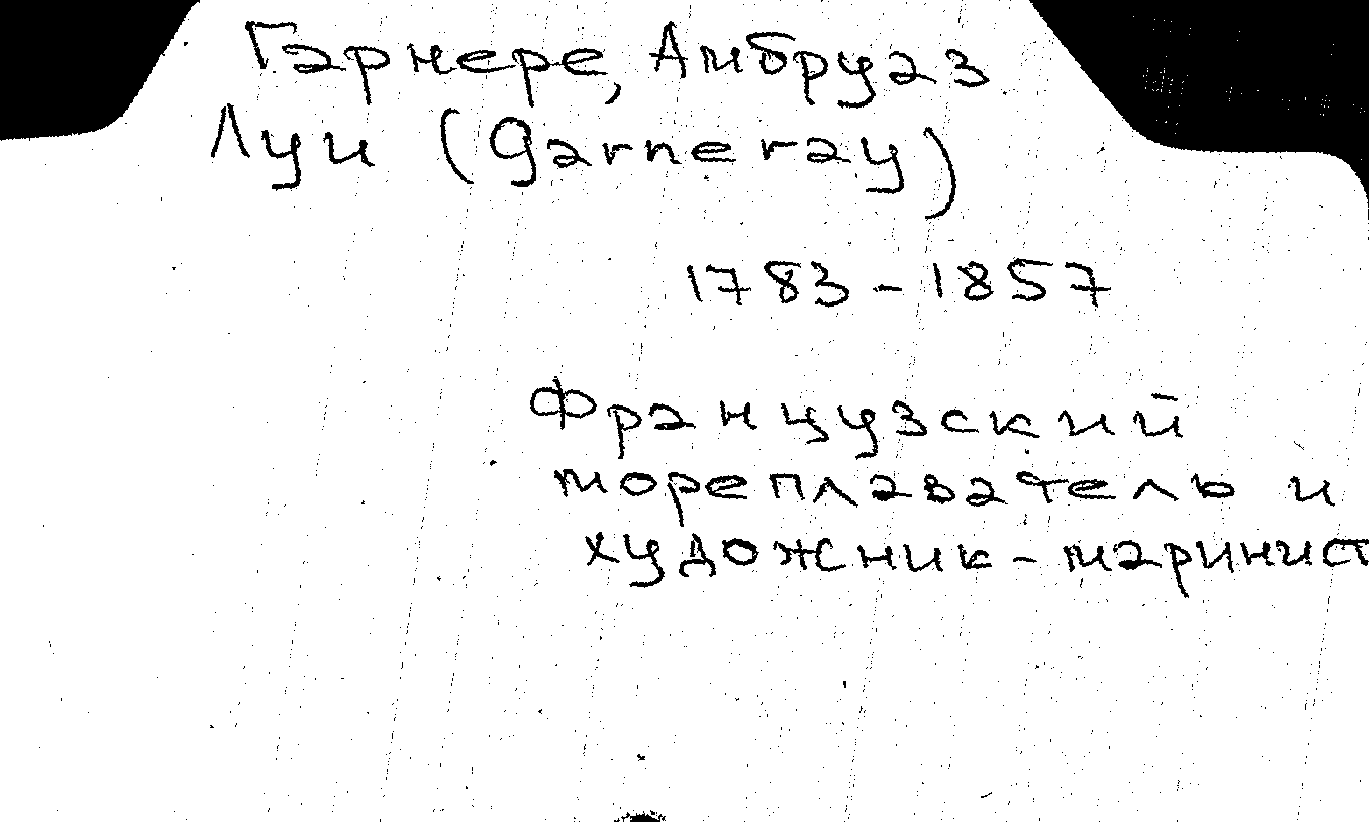 Гарнере, Амбруаз
Луи (Garneray)
1783-1857
Французский
мореплаватель и
художник-маринист